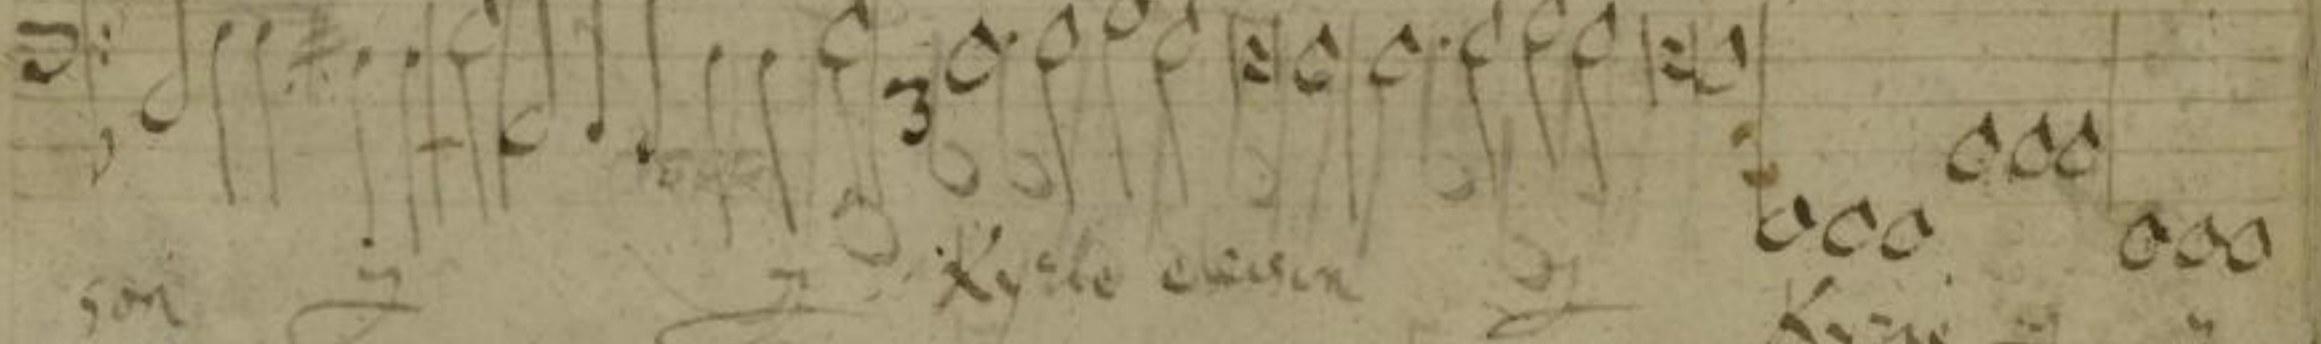 son ij ij Kyrie eleison ij Kyrie ij ij